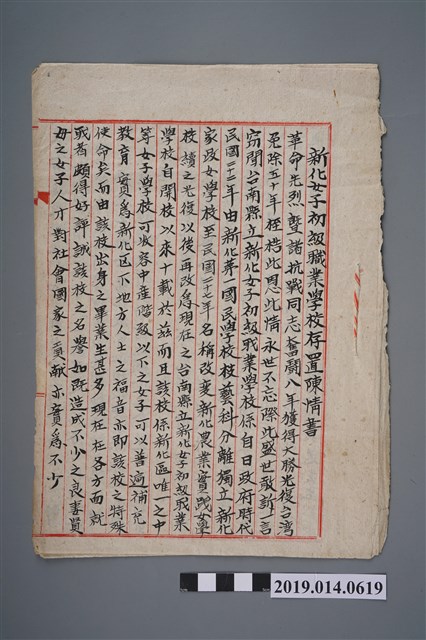 新化女子初級職業學校存置陳情書
革命先烈暨諸抗戰同志奮鬪八年獲得大勝光復台湾
免除五十年桎梏此恩此情永世不忘際此盛世敢訴一言
窃聞台南縣立新化女子初級職業學校係自日政府時代
民國二十二年由新化第一國民學校技藝科分離獨立新化
家政女學校至民國三十七年名稱改変新化農業實践女
校續之光復以後再改為現在之台南縣立新化女子初級職業
學校自開校以來十載於茲而且該校係新化區唯一之中
等女子學校可收容中産階級以下之女子可以普遍補充
教育實為新化区下地方人士之福音亦即該校之特殊
使命矣而由該校出身之畢業生甚多現在在各方面就
職者頗得好評誠該校之名譽如既造成不少之良妻賢
母之女子人才對社會國家之貢献亦實為不少
2019.014.0619